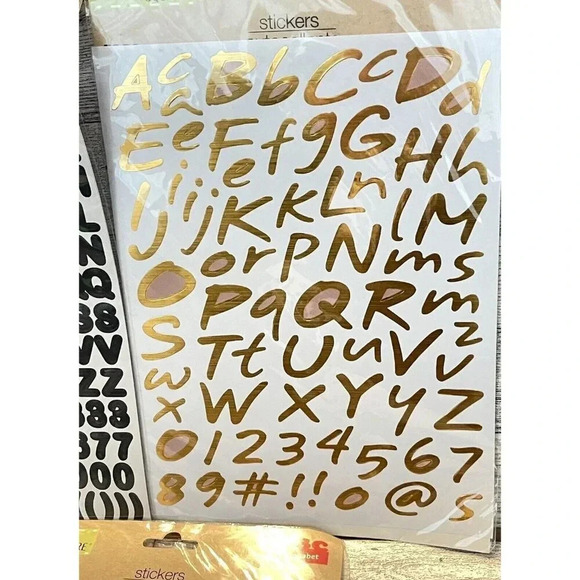 stickers
A c B b C c D d
a
E e F f g G H h
e
I i i j K k L n l M
J
O o r P N m s
P q Q R m
S T t U u V v z
w W X Y y Z v
x
0 1 2 3 4 5 6 7
8 9 # ! ! o @ s
L
N
Q
88
W
ZZ
888
877
000
((()))
stickers